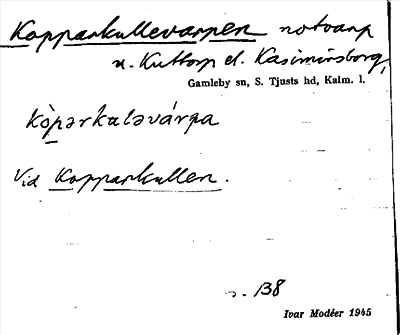 Kopparkullevarpen notvarp
u. Kuttorp el. Kasimirsborg,
Gamleby sn, S. Tjusts hd, Kalm. l.
kòpərkuləvárpa
Vid Kopparkullen.
s. 138
Ivar Modéer 1945